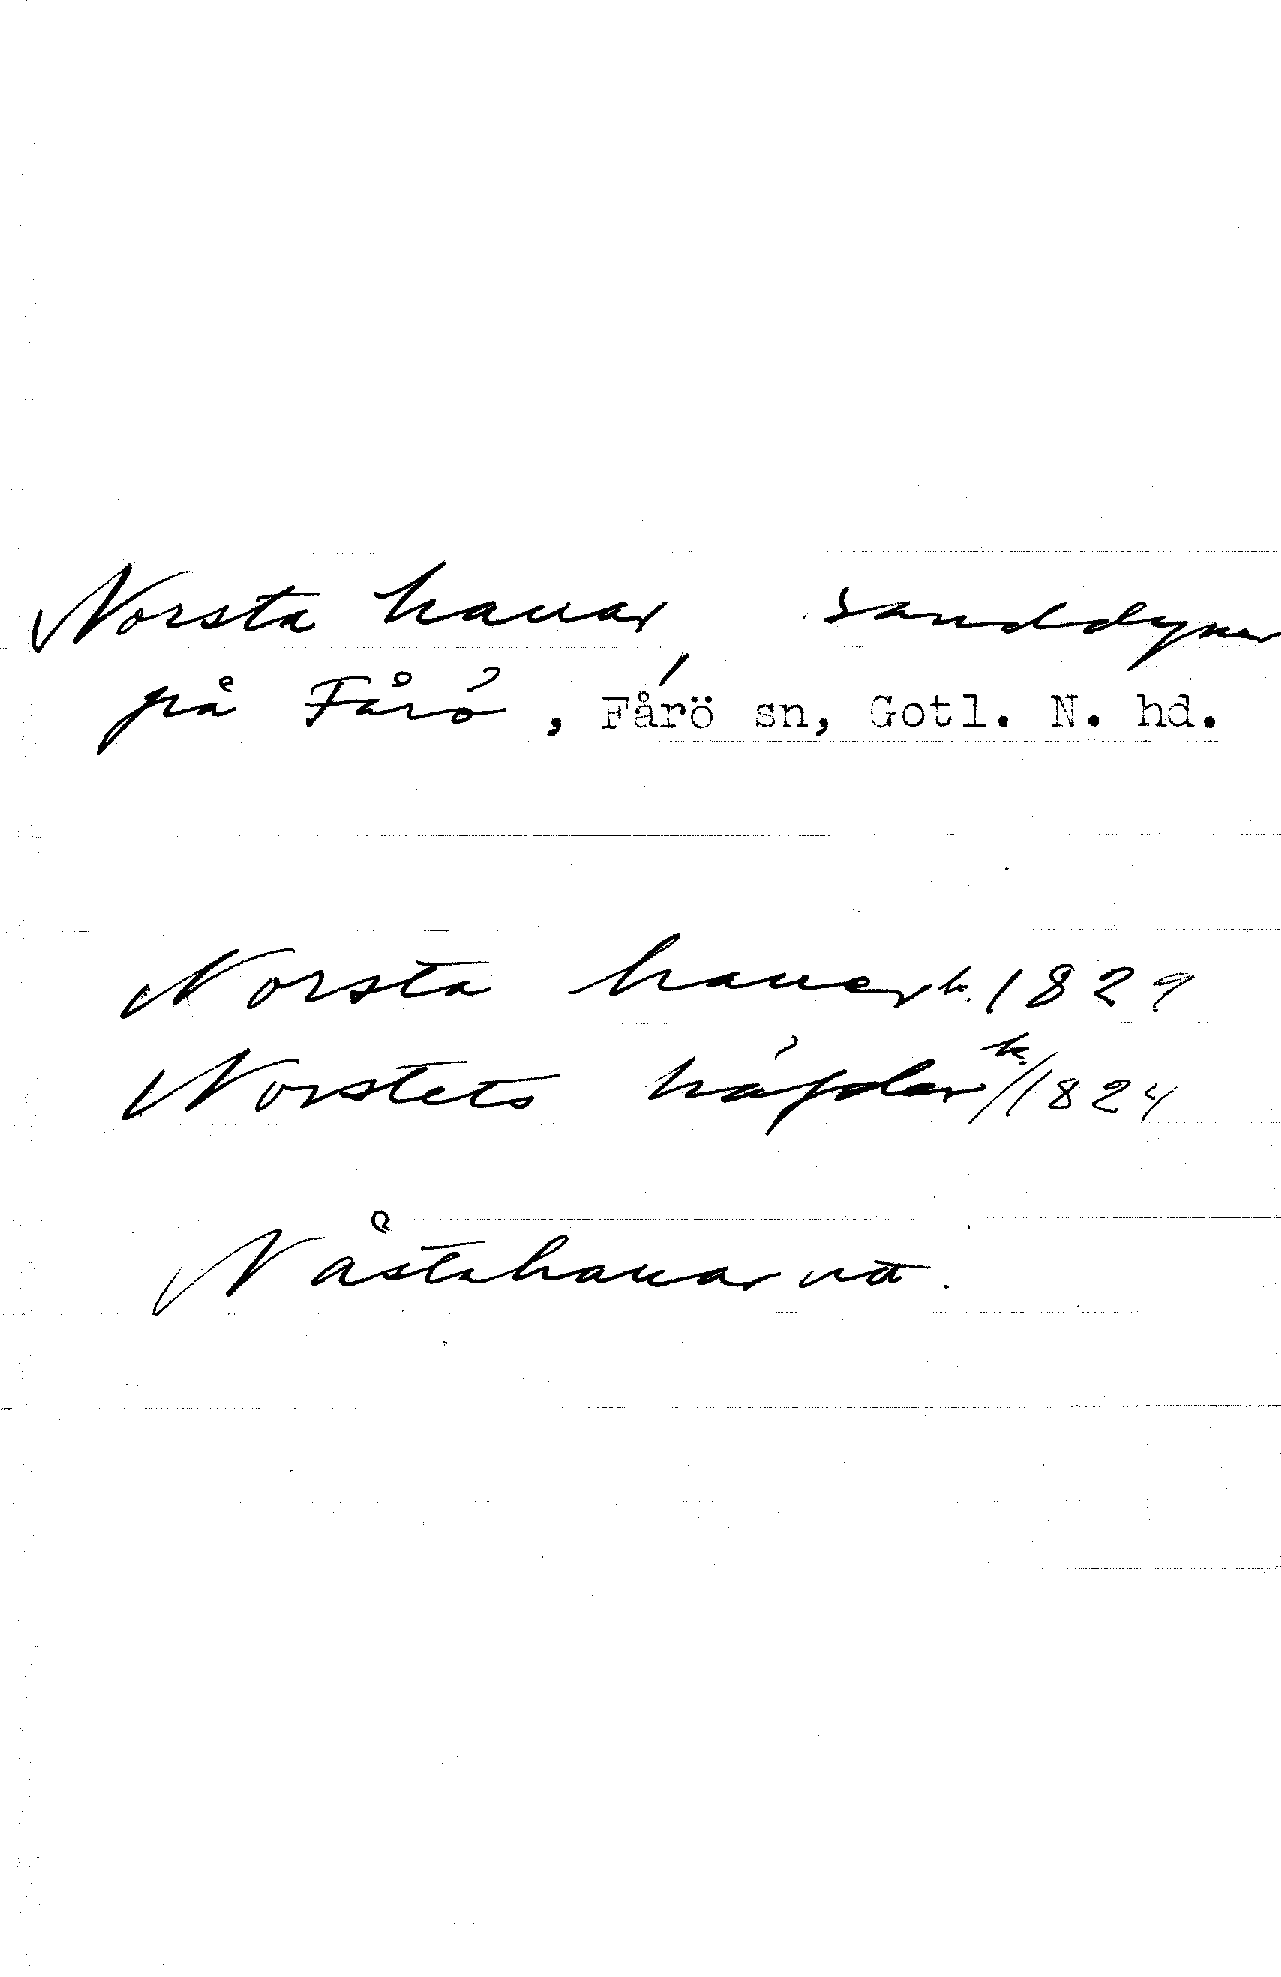 Norsta hauar, sanddyner
på Fårö, Fårö sn, Gotl. N. hd.
Norsta hauer k. 1829
Norstets höjder k. 1824
Nåstahauarna.